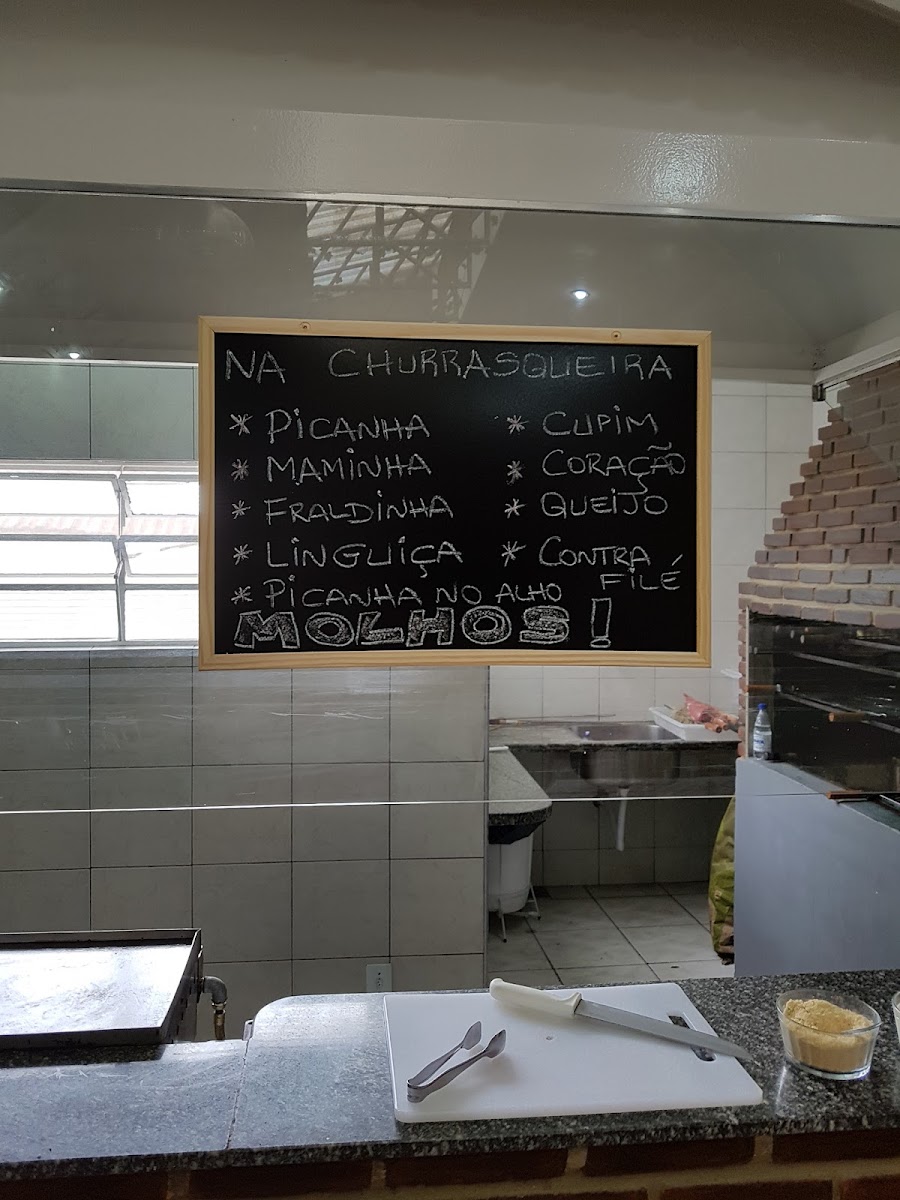 NA CHURRASQUEIRA
* PICANHA
* MAMINHA
* FRALDINHA
* LINGUIÇA
* PICANHA NO ALHO
* CUPIM
* CORAÇÃO
* QUEIJO
* CONTRA
FILÉ
MOLHOS!